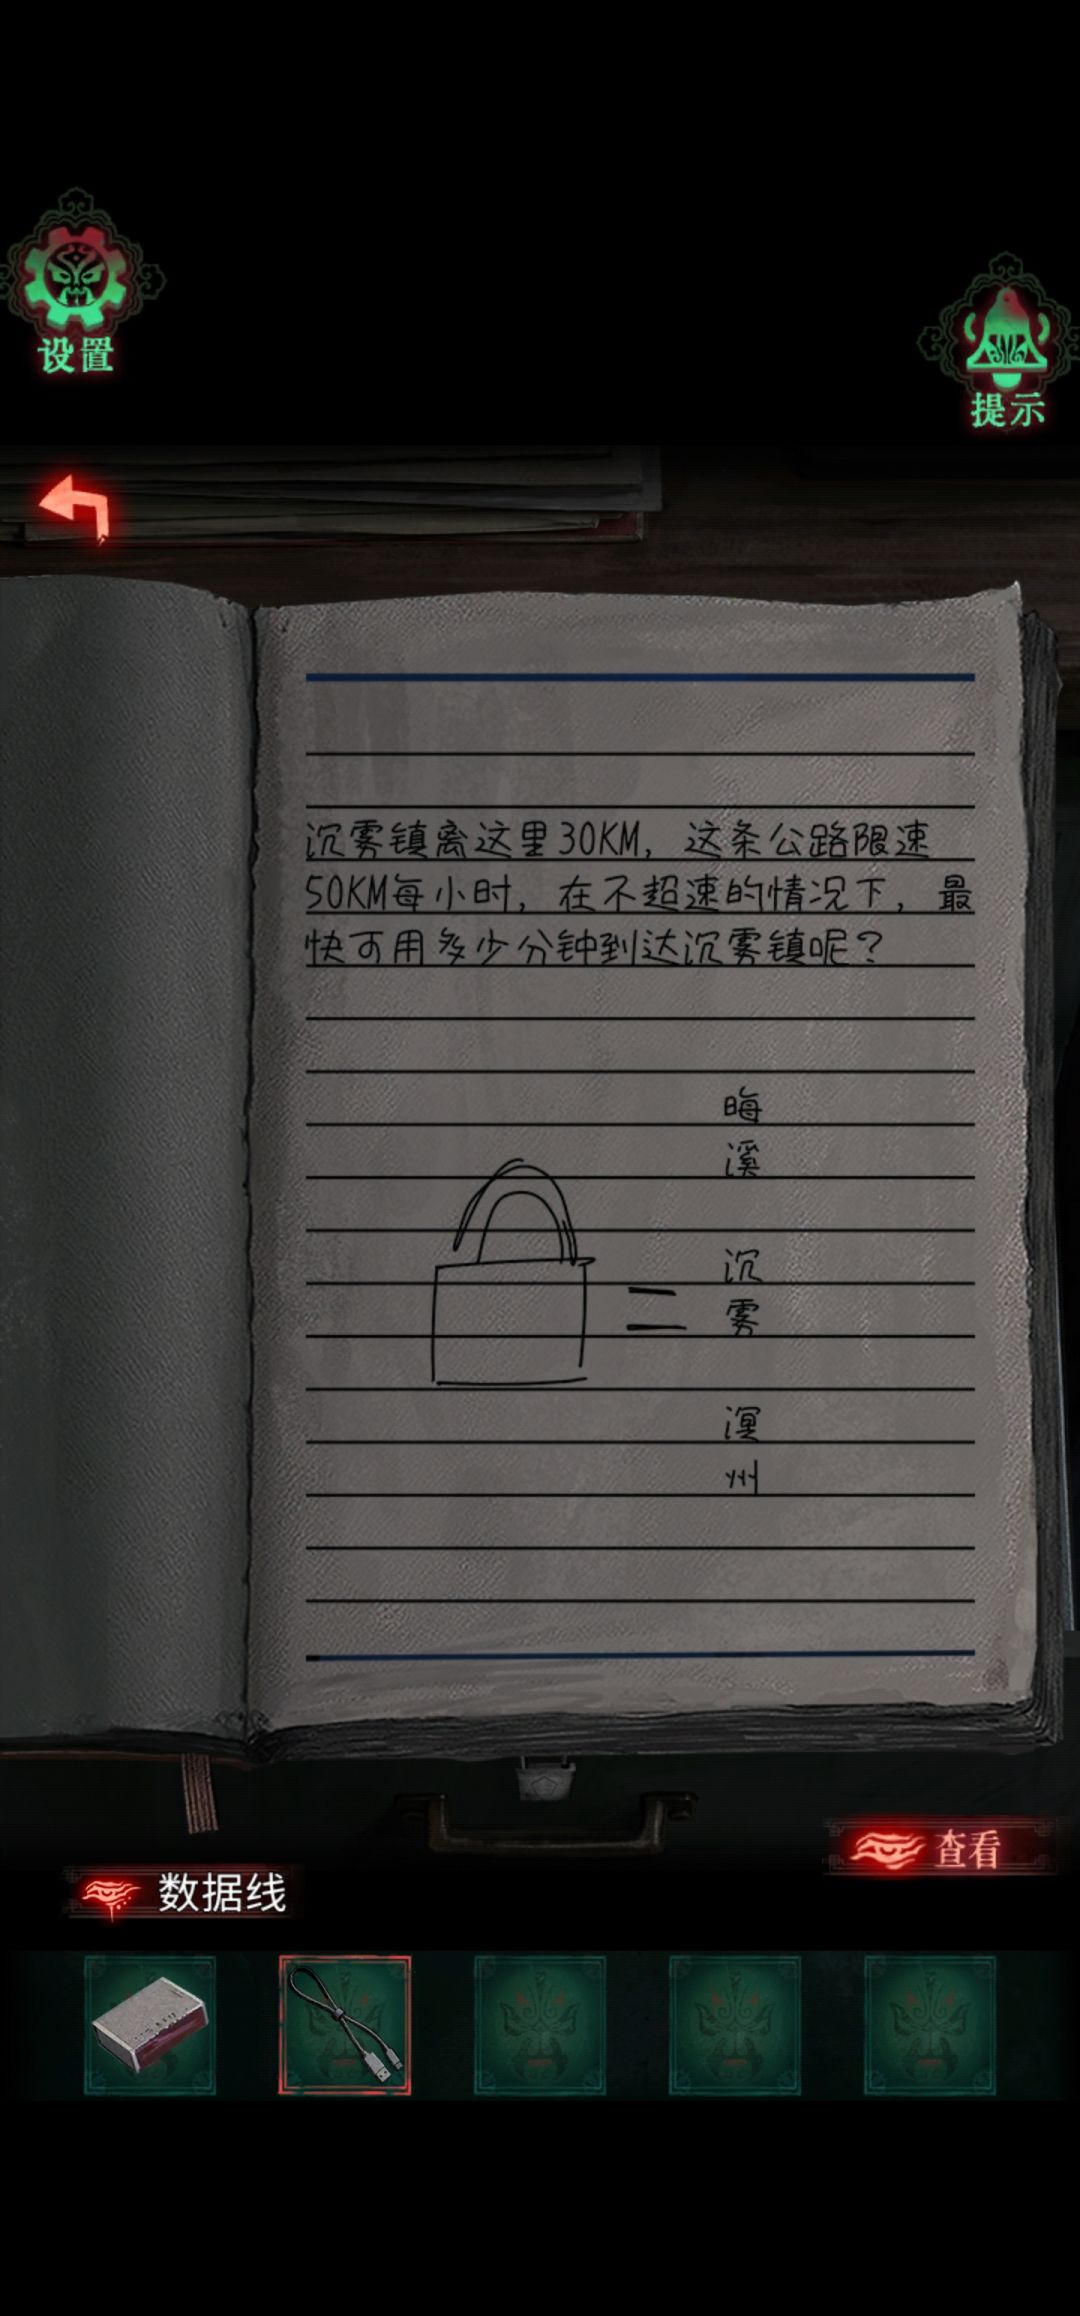 设置
提示
沉雾镇离这里30KM，这条公路限速
50KM每小时，在不超速的情况下，最
快可用多少分钟到达沉雾镇呢？
晦
溪
沉
雾
溟
州
查看
数据线